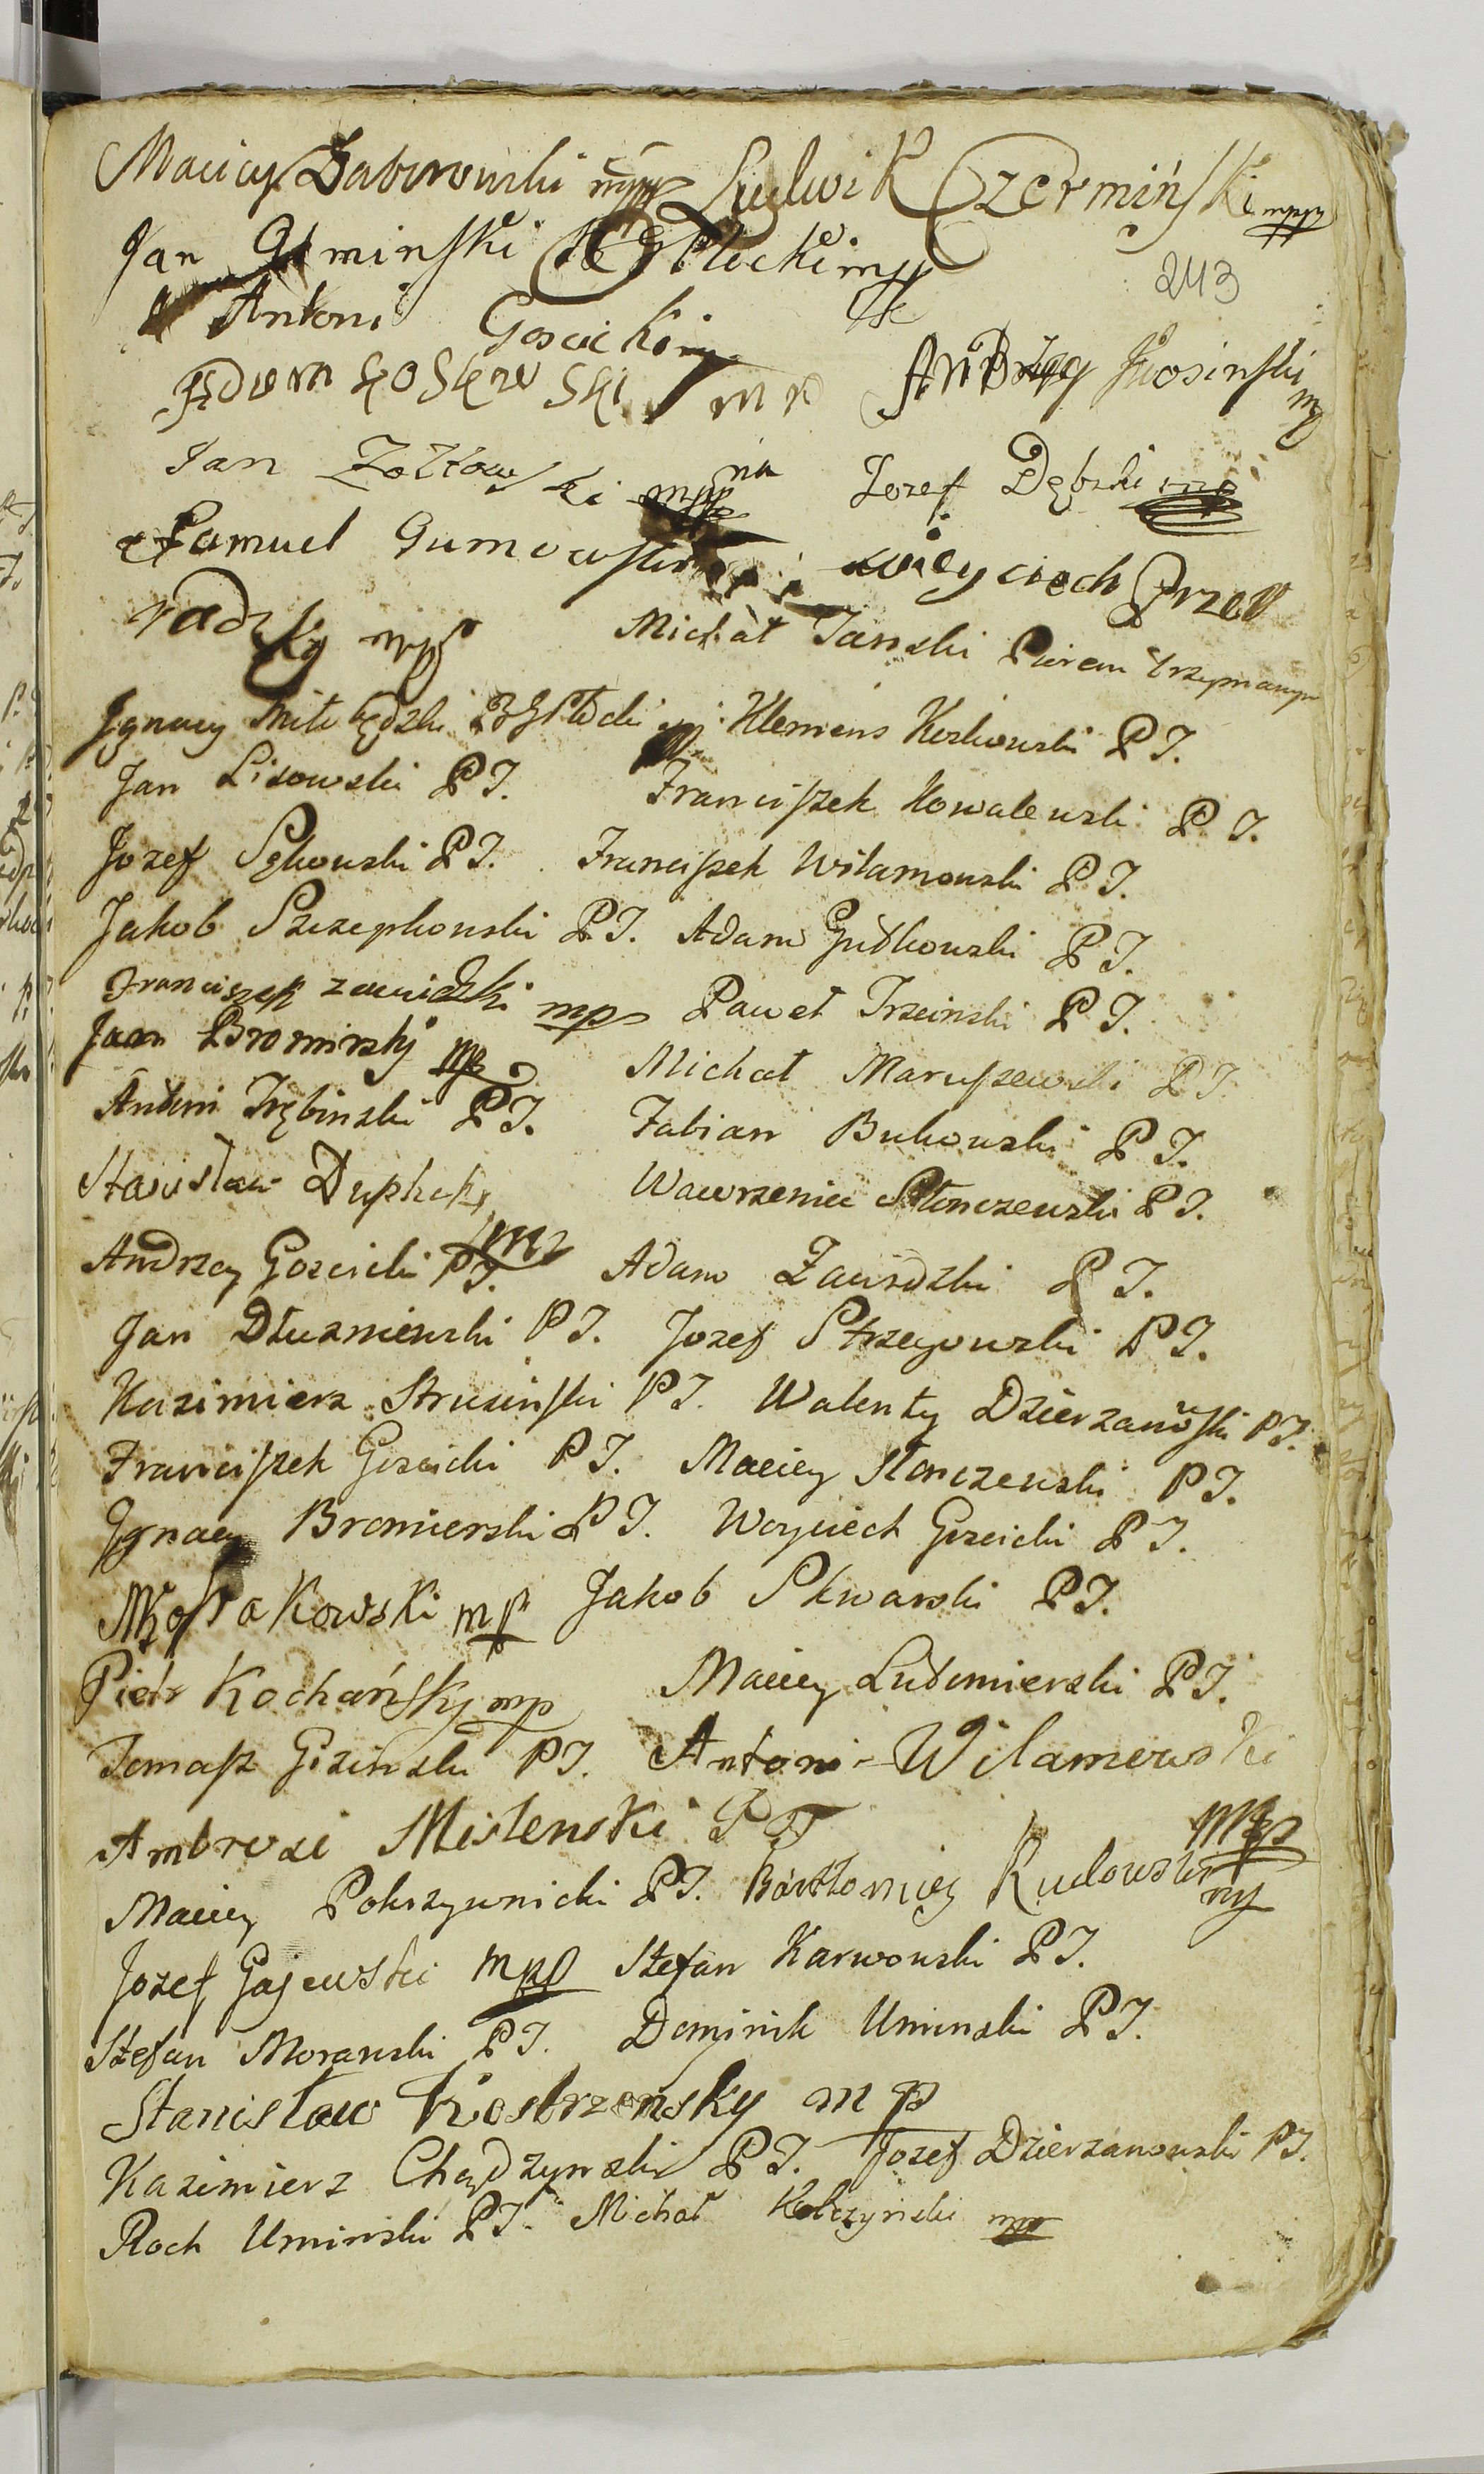 Maciey Zaborowski mpp Ludwik Czermiński mpp
Jan Giminski Płocki mpp
243
Antoni Gościcki mp
Jędrzy Kosinski mp
mp
Jan Żółtowski mpp Jozef Dębski mp
Samuel Gumowski woyciech Przed
radzky mp Michał Janski Piórem trzymanym
Ignacy Miłobędzki Płocki mp Klemens Koskowski P T.
Jan Lisowski P T. Franciszek Kowalewski P T.
Jozef Sękowski P T. Franciszek Wilamowski P T.
Jakob Szczepkowski P T. Adam Gutkowski P T.
Franciszek zawidzki mp Paweł Trzcinski P T.
Jaan Bromirskj mp Michał Maruszewski P T.
Antoni Trębinski P T. Fabian Bukowski P T.
Stanisław Dupliski mp Wawrzeniec Słonczewski P T.
Andrzey Gościcki P T. Adam Zawidzki P T.
Jan Dłuzniewski P T. Jozef Strzeszowski P T.
Kazimierz Strusinski P T. Walenty Dzierzanowski P T.
Franciszek Gościcki P T. Maciey Słonczewski P T.
Ignacy Bromierski P T. Woyciech Gościcki P T.
mp Jakob Skwarski P T.
Piotr Kochańskj mp Maciey Lutomierski P T.
Tomasz Gozinski P T. Antoni Wilamowski
mpp
Ambrozi Mislenski P T
Maciey Pokrzywnicki P T. Bartłomiey Rudowski mp
Jozef Gajewski mpp Stefan Karwowski P T.
Stefan Morawski P T. Dominik Uminski P T.
Stanisław Kostrzensky mp
Kazimierz Chądzynski P T. Jozef Dzierzanowski P T.
Roch Uminski P T. Michał Kolczyński mpp